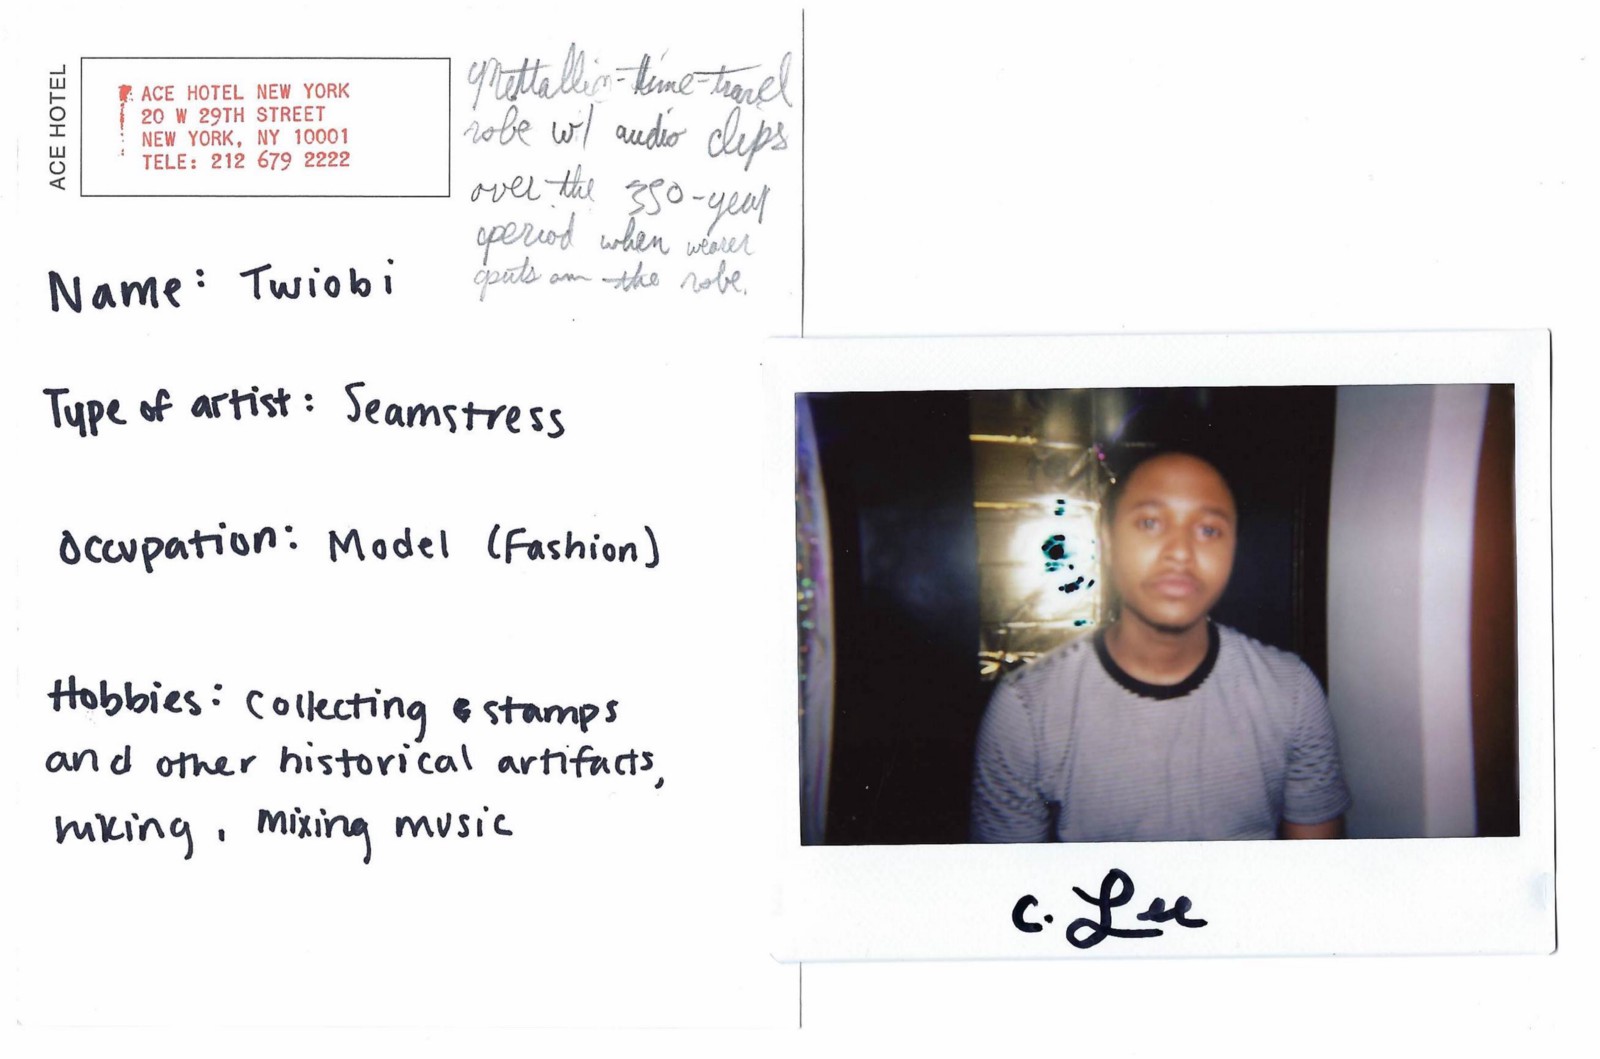 ACE HOTEL
ACE HOTEL NEW YORK
20 W 29TH STREET
NEW YORK, NY 10001
TELE: 212 679 2222
Mettallic-time-travel
robe w/ audio clips
over the 350-year
period when wearer
puts on the robe.
Name: Twiobi
Type of artist: Seamstress
Occupation: Model (Fashion)
Hobbies: Collecting stamps
and other historical artifacts,
hiking, mixing music
C. Lee